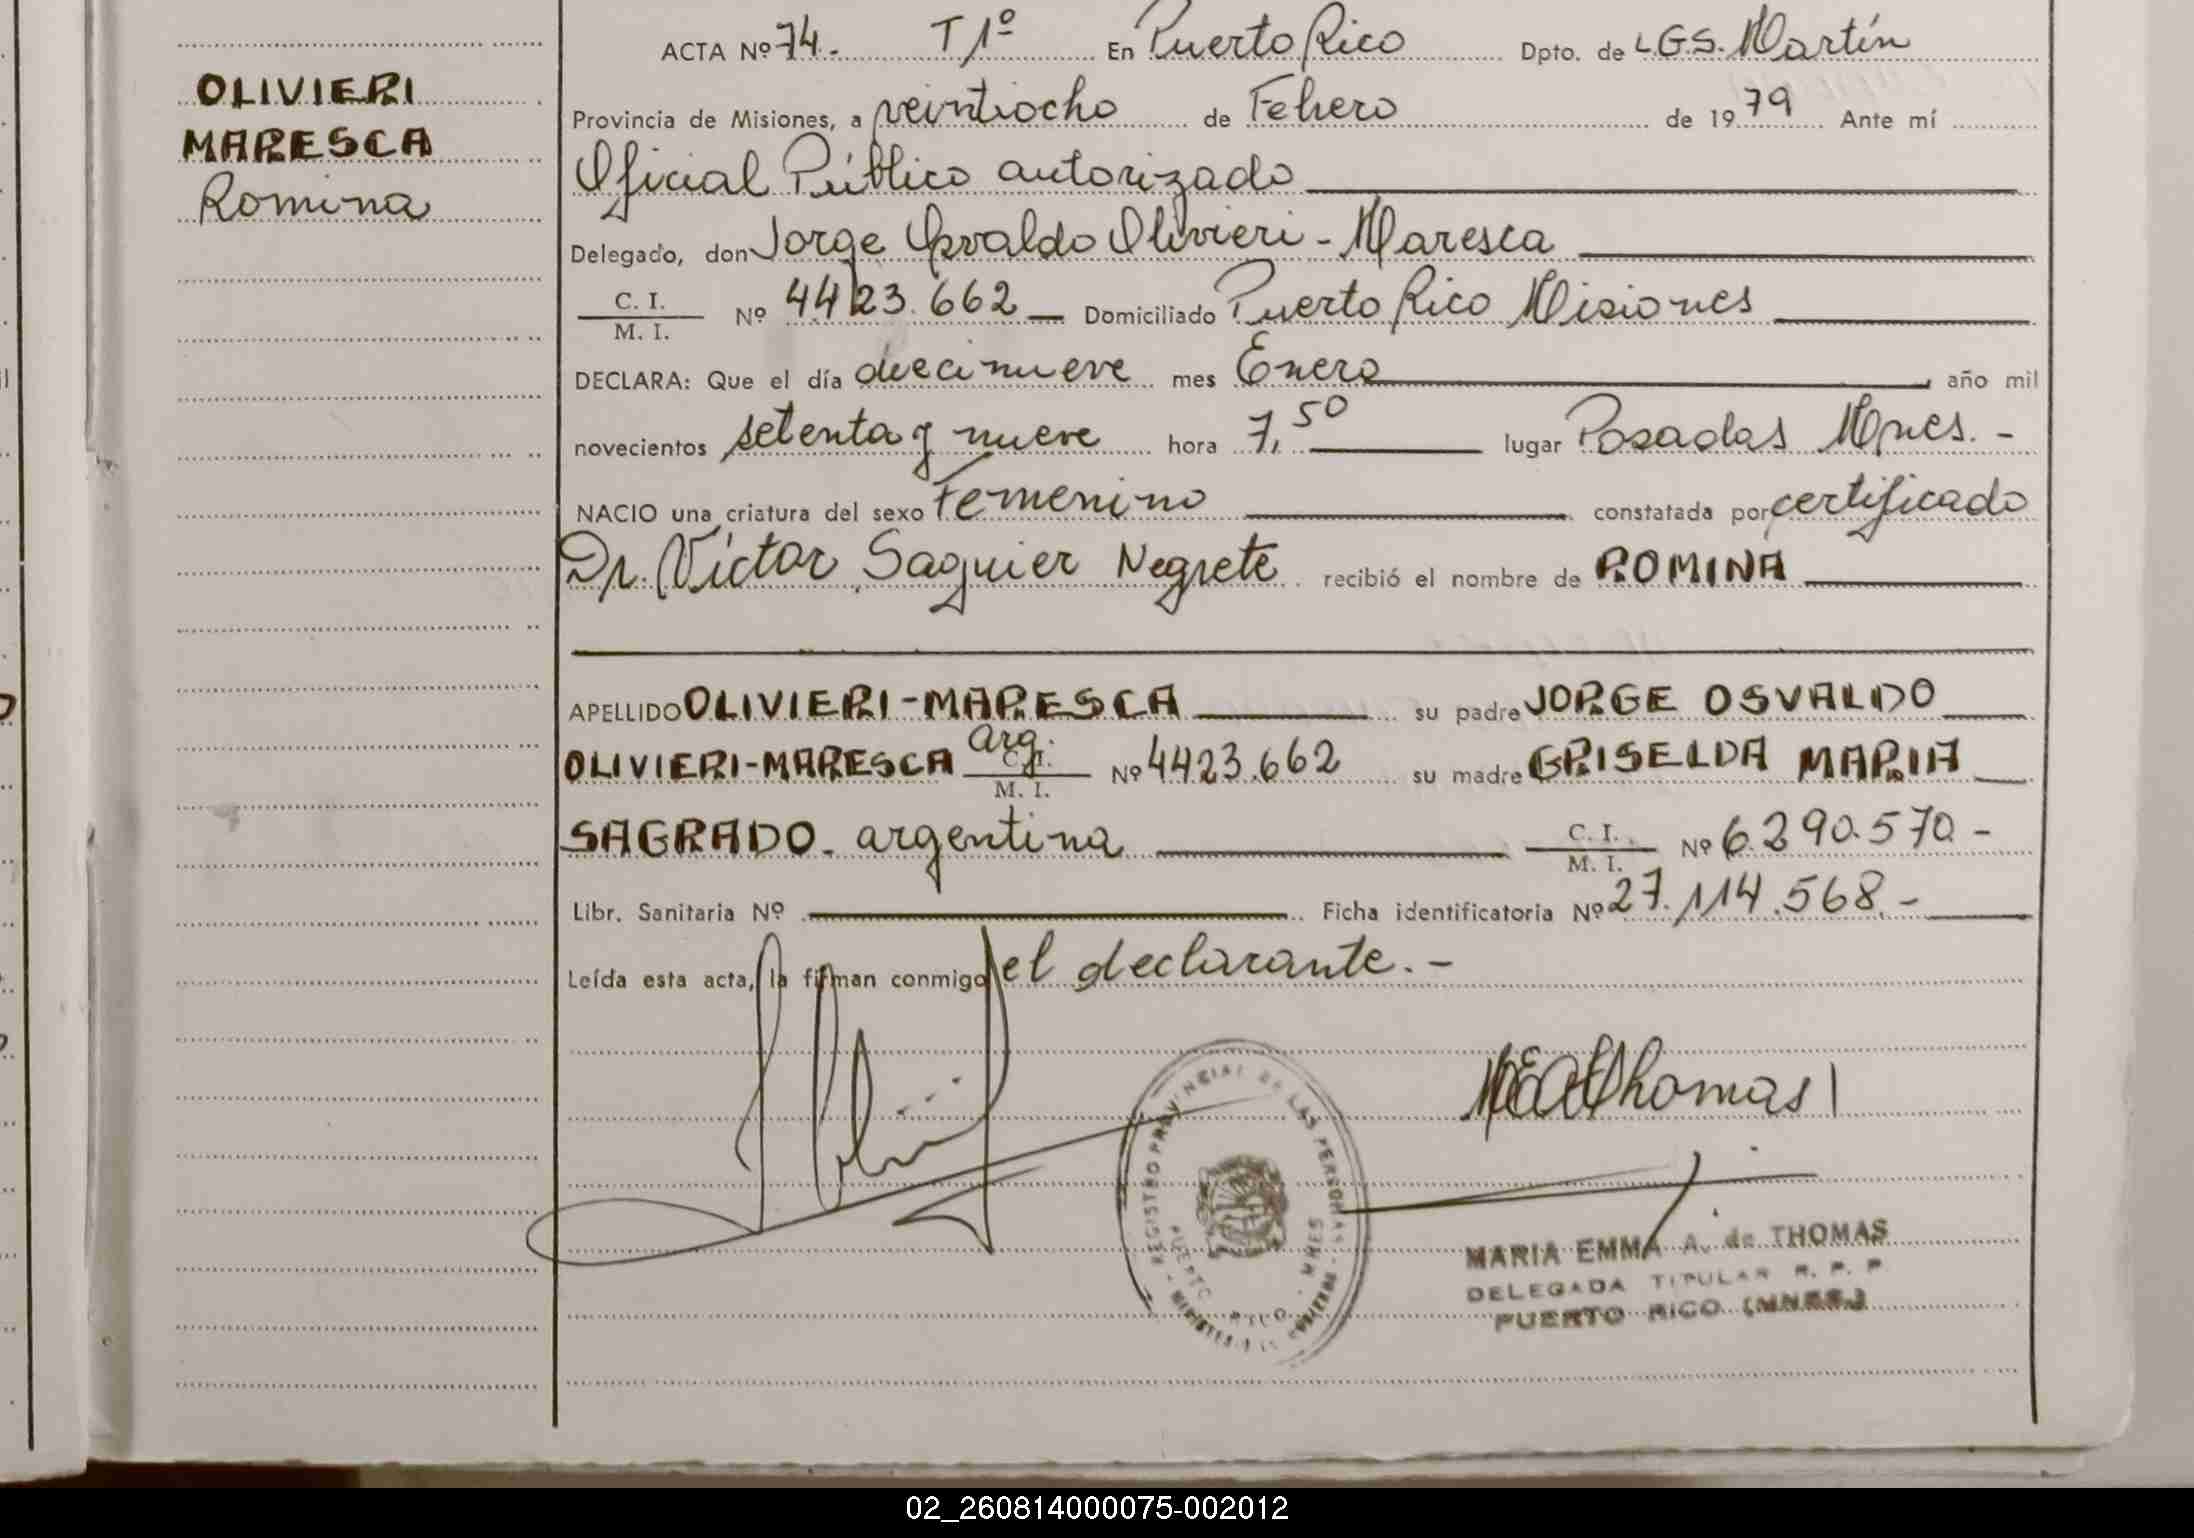 OLIVIERI
MARESCA
Romina
ACTA Nº 74.- T 1º En Puerto Rico Dpto. de L.G.S. Martín
Provincia de Misiones, a veintiocho de Febrero de 1979 Ante mí
Oficial Público autorizado
Delegado, don Jorge Osvaldo Olivieri - Maresca
C. I.
M. I. Nº 4423.662 Domiciliado Puerto Rico Misiones
DECLARA: Que el día diecinueve mes Enero año mil
novecientos setenta y nueve hora 7,50 lugar Posadas Mnes. -
NACIO una criatura del sexo Femenino constatada por certificado
Dr. Víctor Saguier Negrete recibió el nombre de ROMINA
APELLIDO OLIVIERI-MARESCA su padre JORGE OSVALDO
OLIVIERI-MARESCA arg. C. I. M. I. Nº 4423.662 su madre GRISELDA MARIA
SAGRADO. argentina C. I. M. I. Nº 6.290.570 -
Libr. Sanitaria Nº Ficha identificatoria Nº 27.114.568.-
Leída esta acta, la firman conmigo el declarante. -
MEAThomas
REGISTRO PROVINCIAL DE LAS PERSONAS
PUERTO RICO - MNES
MARIA EMMA A. de THOMAS
DELEGADA TITULAR R. P. P
PUERTO RICO (MNES.)
02_260814000075-002012